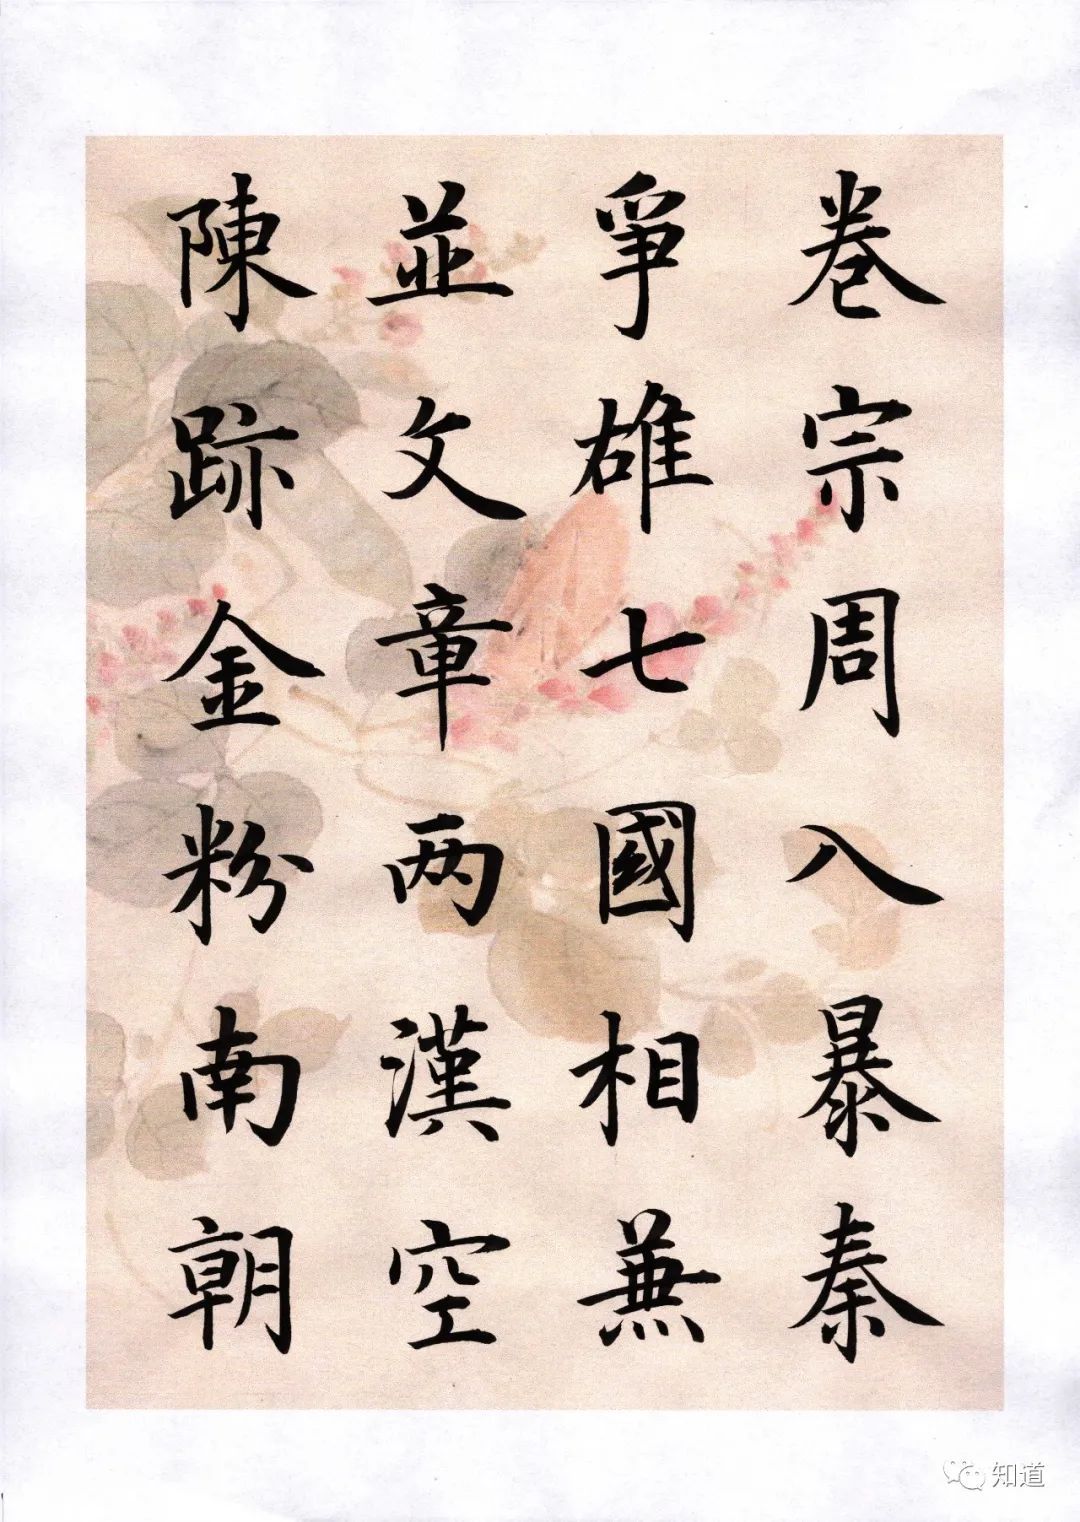 卷宗周入暴秦
爭雄七國相兼
並文章两漢空
陳跡金粉南朝
知道